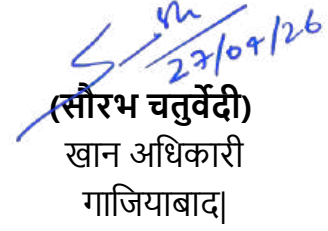 27/04/26
(सौरभ चतुर्वेदी)
खान अधिकारी
गाजियाबाद|